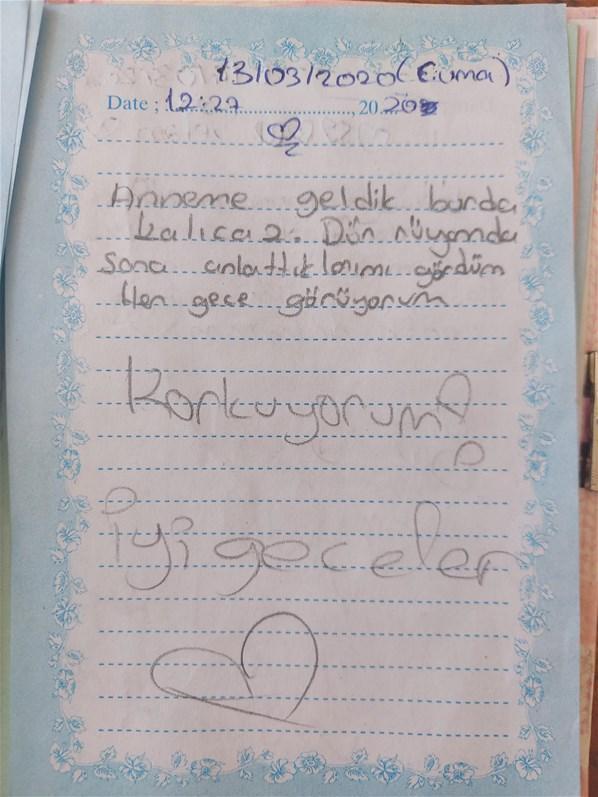 13/03/2020 (Cuma)
Date : 12:27 , 20 20
Anneme geldik burda
kalıcaz. Dün rüyamda
sana anlattıklarımı gördüm
Her gece görüyorum
Korkuyorum!
İyi geceler